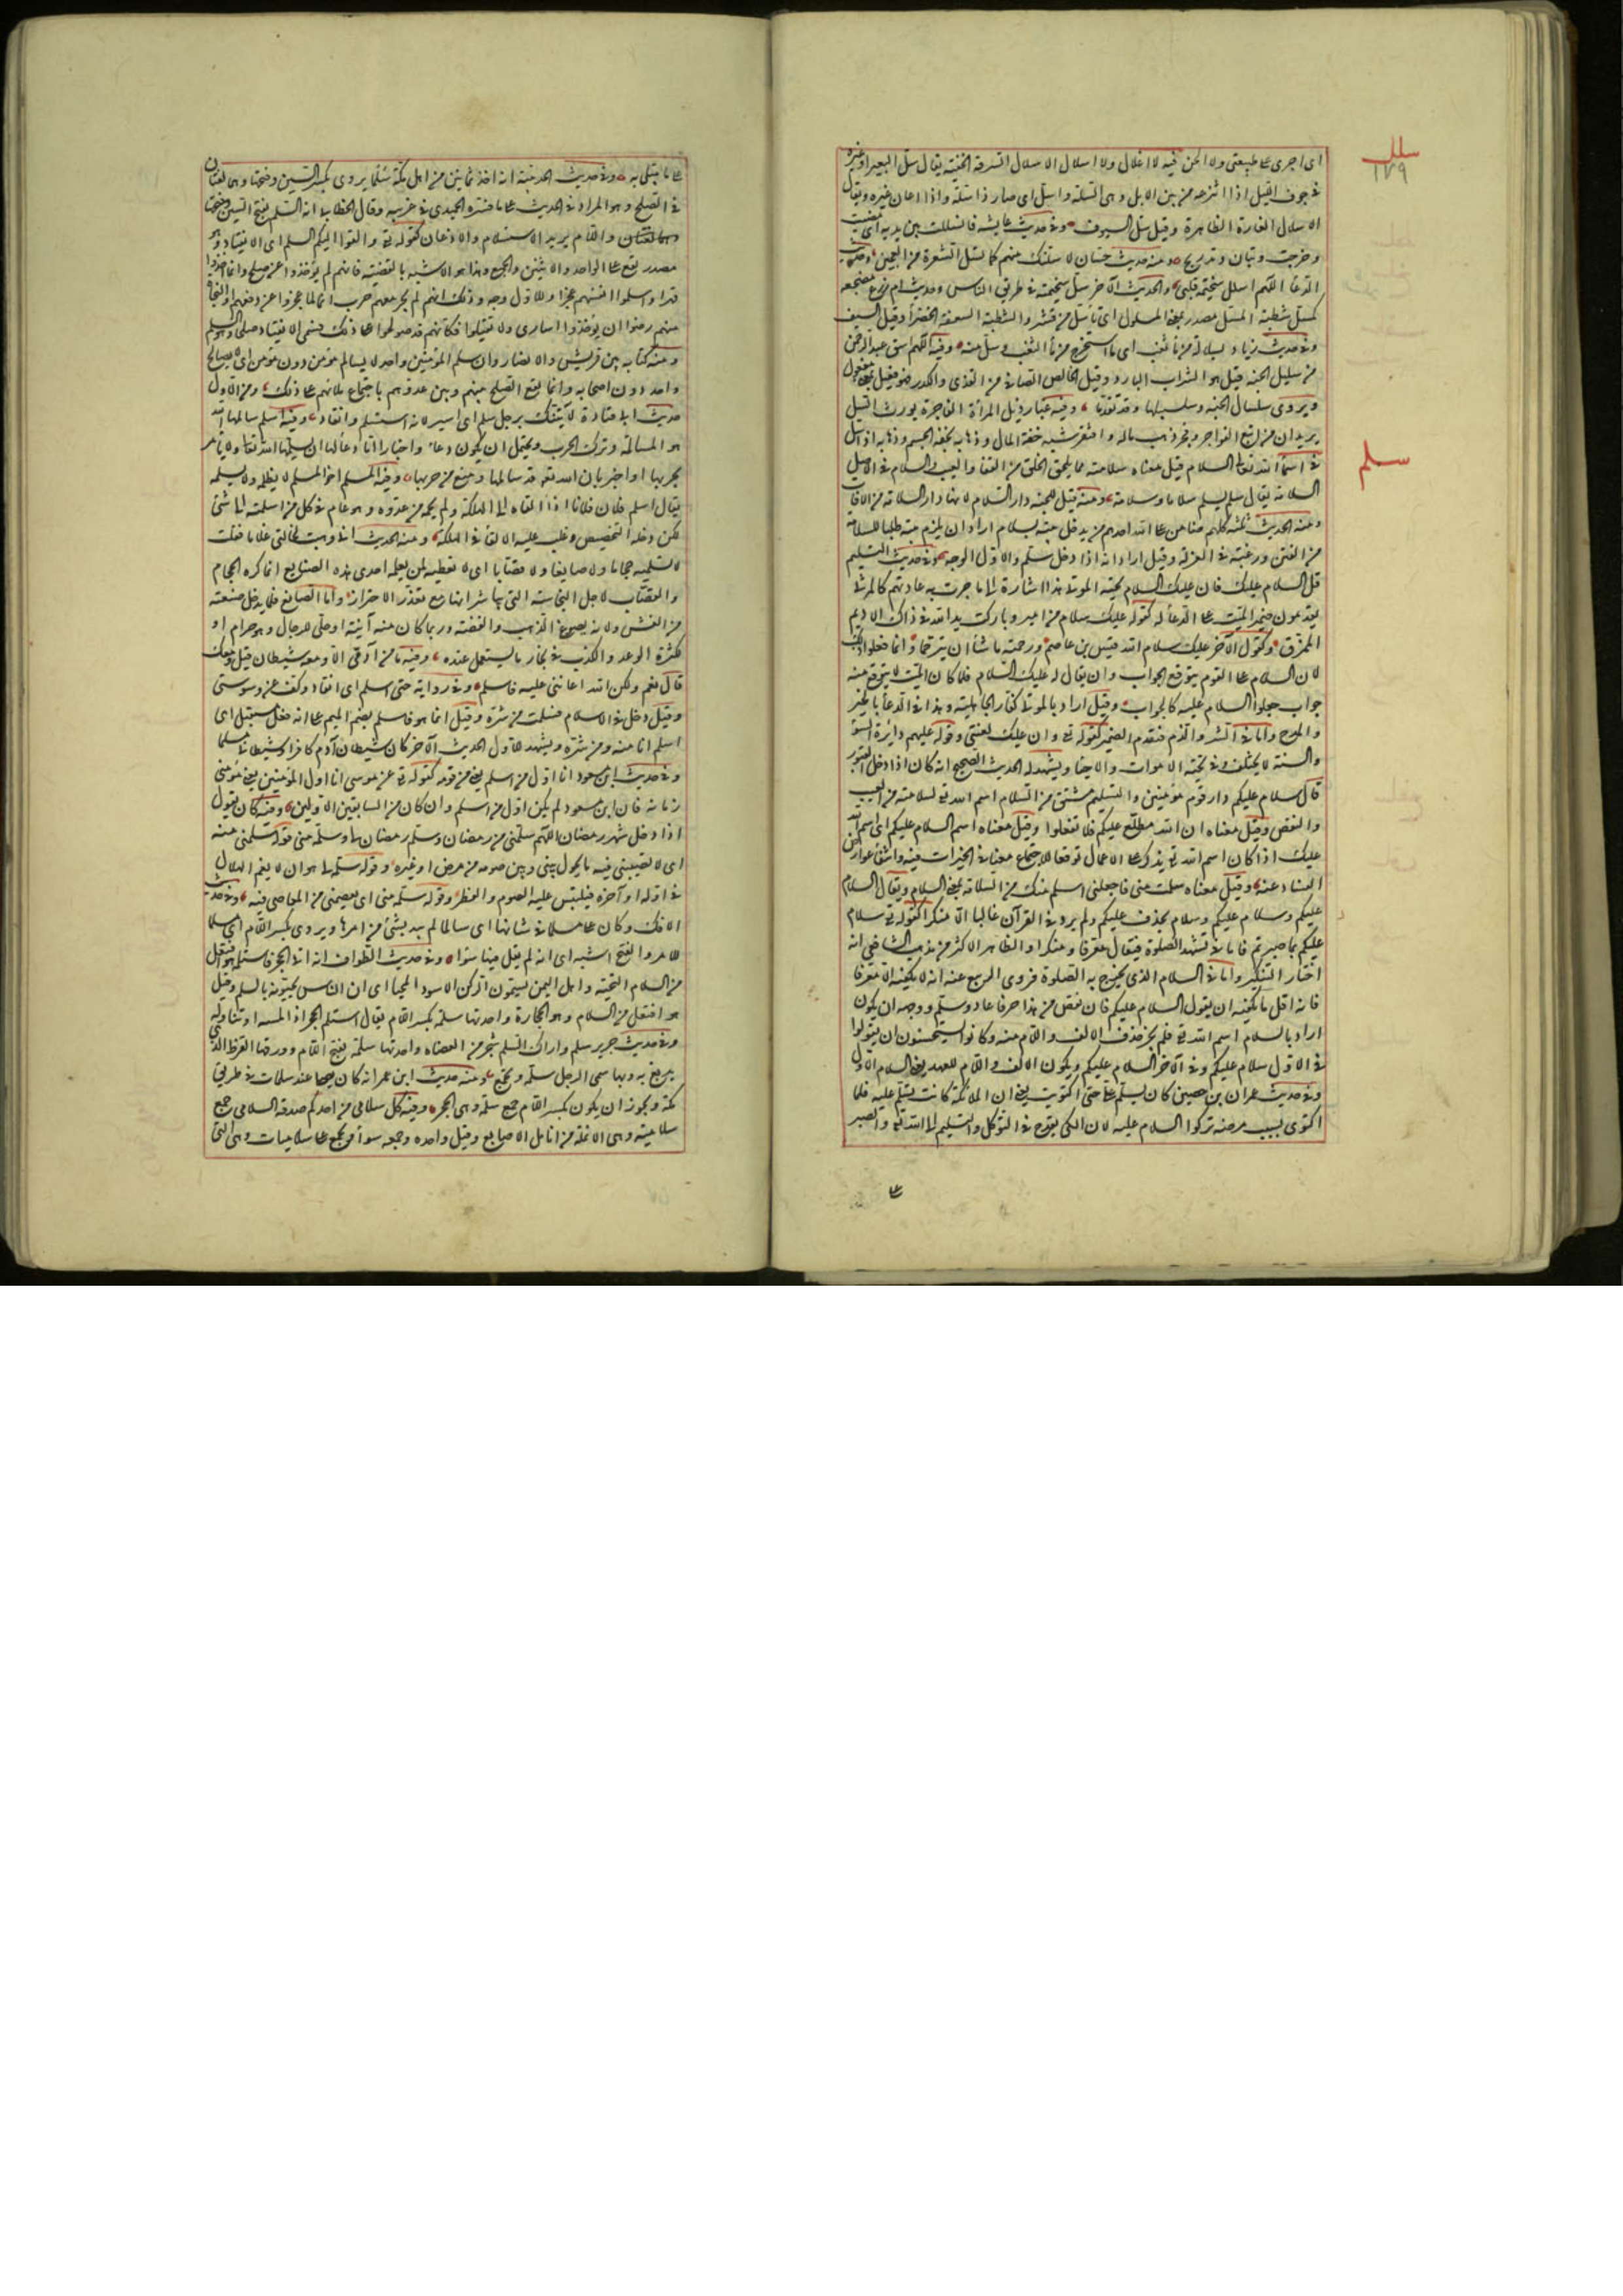 سلل
١٧٩
اى اجرى على طبيعتى ولا الحن فيه لا اغلال ولا اسلال الاسلال السرقة الخفية يقال سل البعير او غيره
فى جوف الليل اذا انتزعه من بين الابل وهى السلة واسل اى صار ذا سلة واذا اعان غيره ويقال
الاسلال الغارة الظاهرة وقيل سل السيوف وفى حديث عايشه فانسللت بين يديه اى مضيت
وخرجت وتبان وتدريج ومنه حديث حسان لاسلنك منهم كما تسل الشعرة من العجين وحديث
الدعا اللهم اسلل سخيمة قلبى والحديث الآخر من سل سخيمته فى طريق الناس وحديث ام زرع مضجعه
كمسل شطبة المسل مصدر بمعنى المسلول اى ما سل من قشره والشطبة السعفة الخضرا وقيل السيف
وفى حديث زياد بسلالة من ما ثغب اى ما استخرج من ما الثغب وسل منه وفيه اللهم اسق عبد الرحمن
من سليل الجنة قيل هو الشراب البارد وقيل الخالص الصافى من القذى والكدر فهو فعيل بمعنى مفعول
ويروى سلسال الجنه وسلسبيلها وقد تقدما وفيه غبار ذيل المرأة الفاجرة يورث السل
يريد ان من اتبع الفواجر وفجر ذهب ماله وافتقر شبه خفة المال وذهابه بخفة الجسم وذهابه اذا سل
سلم
فى اسما الله تعالى السلام قيل معناه سلامته مما يلحق الخلق من الفنا والعيب والسلام فى الاصل
السلامة يقال سلم يسلم سلاما وسلامة ومنه قيل للجنة دار السلام لانها دار السلامة من الافات
ومنه الحديث ثلثة كلهم ضامن على الله احدهم من يدخل بيته بسلام اراد ان يلزم بيته طلبا للسلامة
من الفتن ورغبة فى العزلة وقيل اراد انه اذا دخل سلم والاول الوجه وفى حديث التسليم
قل السلام عليك فان عليك السلام تحية الموتى هذا اشارة الى ما جرت به عادتهم كالمرثى
يقدمون ضمير الميت على الدعا له كقوله عليك سلام من امير وباركت يد الله فى ذاك الاديم
الممزق وكقول الآخر عليك سلام الله قيس بن عاصم ورحمته ما شا ان يترحما وانما فعلوا ذلك
لان السلام على القوم يتوقع الجواب وان يقال له عليك السلام فلما كان الميت لا يتوقع منه
جواب جعلوا السلام عليه كالجواب وقيل اراد بالموتى كفار الجاهلية وهذا فى الدعا بالخير
والمدح واما فى الشر والذم فيقدم الضمير كقوله تع وان عليك لعنتى وقوله عليهم دائرة السوء
والسنة لا تختلف فى تحية الاموات والاحيا ويشهد له الحديث الصحيح انه كان اذا دخل القبور
قال سلام عليكم دار قوم مؤمنين والتسليم مشتق من السلام اسم الله تع لسلامته من العيب
والنقص وقيل معناه ان الله مطلع عليكم فلا تغفلوا وقيل معناه اسم السلام عليكم اى اسم الله
عليك اذا كان اسم الله تع يذكر على الاعمال توقعا لاجتماع معانى الخيرات فيه وانتفا عوارض
الفساد عنه وقيل معناه سلمت منى فاجعلنى اسلم منك من السلامة بمعنى السلام ويقال السلام
عليكم وسلام عليكم وسلام بحذف عليكم ولم يرد فى القرآن غالبا الا منكرا كقوله تع سلام
عليكم بما صبرتم فاما فى تشهد الصلوة فيقال معرفا ومنكرا والظاهر الاكثر من مذهب الشافعى انه
اختار التنكير واما فى السلام الذى يخرج به الصلوة فروى الربيع عنه انه لا يكفيه الا معرفا
فانه اقل ما يكفيه ان يقول السلام عليكم فان نقص من هذا حرفا عاد وسلم ووجهه ان يكون
اراد بالسلام اسم الله تع فلم يجز حذف الالف واللام منه وكانوا يستحسنون ان يقولوا
فى الاول سلام عليكم وفى الآخر السلام عليكم ويكون الالف واللام للعهد يعنى السلام الاول
وفى حديث عمران بن حصين كان يسلم على حتى اكتويت يعنى ان الملائكة كانت تسلم عليه فلما
اكتوى بسبب مرضه تركوا السلام عليه لان الكى يقدح فى التوكل والتسليم الى الله تع والصبر
على
على ما يبتلى به وفى حديث الحديبية انه اخذ ثمانين من اهل مكة سلما يروى بكسر السين وفتحها وهما لغتان
فى الصلح وهو المراد فى الحديث على ما فسره الحميدى فى غريبه وقال الخطابى انه السلم بفتح السين وفتحها
واللام يريد الاستسلام والاذعان كقوله تع والقوا اليكم السلم اى الانقياد وهو
مصدر يقع على الواحد والاثنين والجمع وهذا هو الاشبه بالقضية فانهم لم يؤخذوا عن صلح وانما اخذوا
قهرا واسلموا انفسهم عجزا وللاول وجه وذلك انهم لم يجر معهم حرب انما لما عجزوا عن دفعهم او النجاة
منهم رضوا ان يؤخذوا اسارى ولا يقتلوا فكانهم قد صولحوا على ذلك فسمى الانقياد صلحا وهو السلم
ومنه كتابه بين قريش والانصار وان سلم المؤمنين واحد لا يسالم مؤمن دون مؤمن اى لا يصالح
واحد دون اصحابه وانما يقع الصلح بينهم وبين عدوهم باجتماع ملائهم على ذلك ومن الاول
حديث ابى قتادة لآتينك برجل سلم اى اسير لانه استسلم وانقاد وفيه اسلم سالمها الله
هو المسالمة وترك الحرب ويحتمل ان يكون دعاء واخبارا اما دعا لها ان يسالمها الله تعالى ولا يامر
بحربها او اخبر بان الله تعه قد سالمها ومنع من حربها وفيه المسلم اخو المسلم لا يظلمه ولا يسلمه
يقال اسلم فلان فلانا اذا القاه الى الهلكة ولم يحمه من عدوه وهو عام فى كل من اسلمته الى شئ
لكن دخله التخصيص وغلب عليه الالقا فى الهلكة ومنه الحديث انى وهبت لخالتى غلاما فقلت
لا تسلميه حجاما ولا صايغا ولا قصابا اى لا تعطيه لمن يعلمه احدى هذه الصنايع انما كره الحجام
والقصاب لاجل النجاسة التى يباشرانها مع تعذر الاحتراز واما الصائغ فلما يدخل صنعته
من الغش ولانه يصوغ الذهب والفضة وربما كان منه آنية او حلى للرجال وهو حرام او
لكثرة الوعد والكذب فى نجاز ما يستعمل عنده وفيه ما من آدمى الا ومعه شيطان قيل ومعك
قال نعم ولكن الله اعاننى عليه فاسلم وفى رواية حتى اسلم اى انقاد وكف عن وسوستى
وقيل دخل فى الاسلام فسلمت من شره وقيل انما هو فاسلم بضم الميم على انه فعل مستقبل اى
اسلم انا منه ومن شره ويشهد للاول الحديث الآخر كان شيطان آدم كافرا وشيطانى مسلما
وفى حديث ابن مسعود انا اول من اسلم يعنى من قومه كقوله تع عن موسى انا اول المؤمنين يعنى مؤمنى
زمانه فان ابن مسعود لم يكن اول من اسلم وان كان من السابقين الاولين وفيه كان يقول
اذا دخل شهر رمضان اللهم سلمنى من رمضان وسلم رمضان لى وسلمه منى قوله سلمنى منه
اى لا تصيبنى فيه ما يحول بينى وبين صومه من مرض او غيره وقوله سلمه لى هو ان لا يغم الهلال
فى اوله او آخره فيلتبس عليه الصوم والفطر وقوله سلمه منى اى يعصمنى من المعاصى فيه وفى حديث
الافك وكان على مسلما فى شانها اى سالما لم يبد بشئ من امرها ويروى بكسر اللام اى مسلما
للامر والفتح اشبه اى انه لم يقل فينا سوا وفى حديث الطواف انه اتى الحجر فاستلمه هو افتعل
من السلام التحية واهل اليمن يسمون الركن الاسود المحيا اى ان الناس يحيونه بالسلم وقيل
هو افتعل من السلام وهو الحجارة واحدتها سلمة بكسر اللام يقال استلم الحجر اذا لمسه او تناوله
وفى حديث جرير سلم واراك السلم شجر من العضاه واحدتها سلمة بفتح اللام وورقها القرظ الذى
يدبغ به وبها سمى الرجل سلمة ويجمع ومنه حديث ابن عمر انه كان يصلى عند سلمات فى طريق
مكة ويجوز ان يكون بكسر اللام جمع سلمة وهى الحجر وفيه كل سلامى من احدكم صدقة السلامى جمع
سلامية وهى الانملة من انامل الاصابع وقيل واحده وجمعه سوآ ويجمع على سلاميات وهى التى